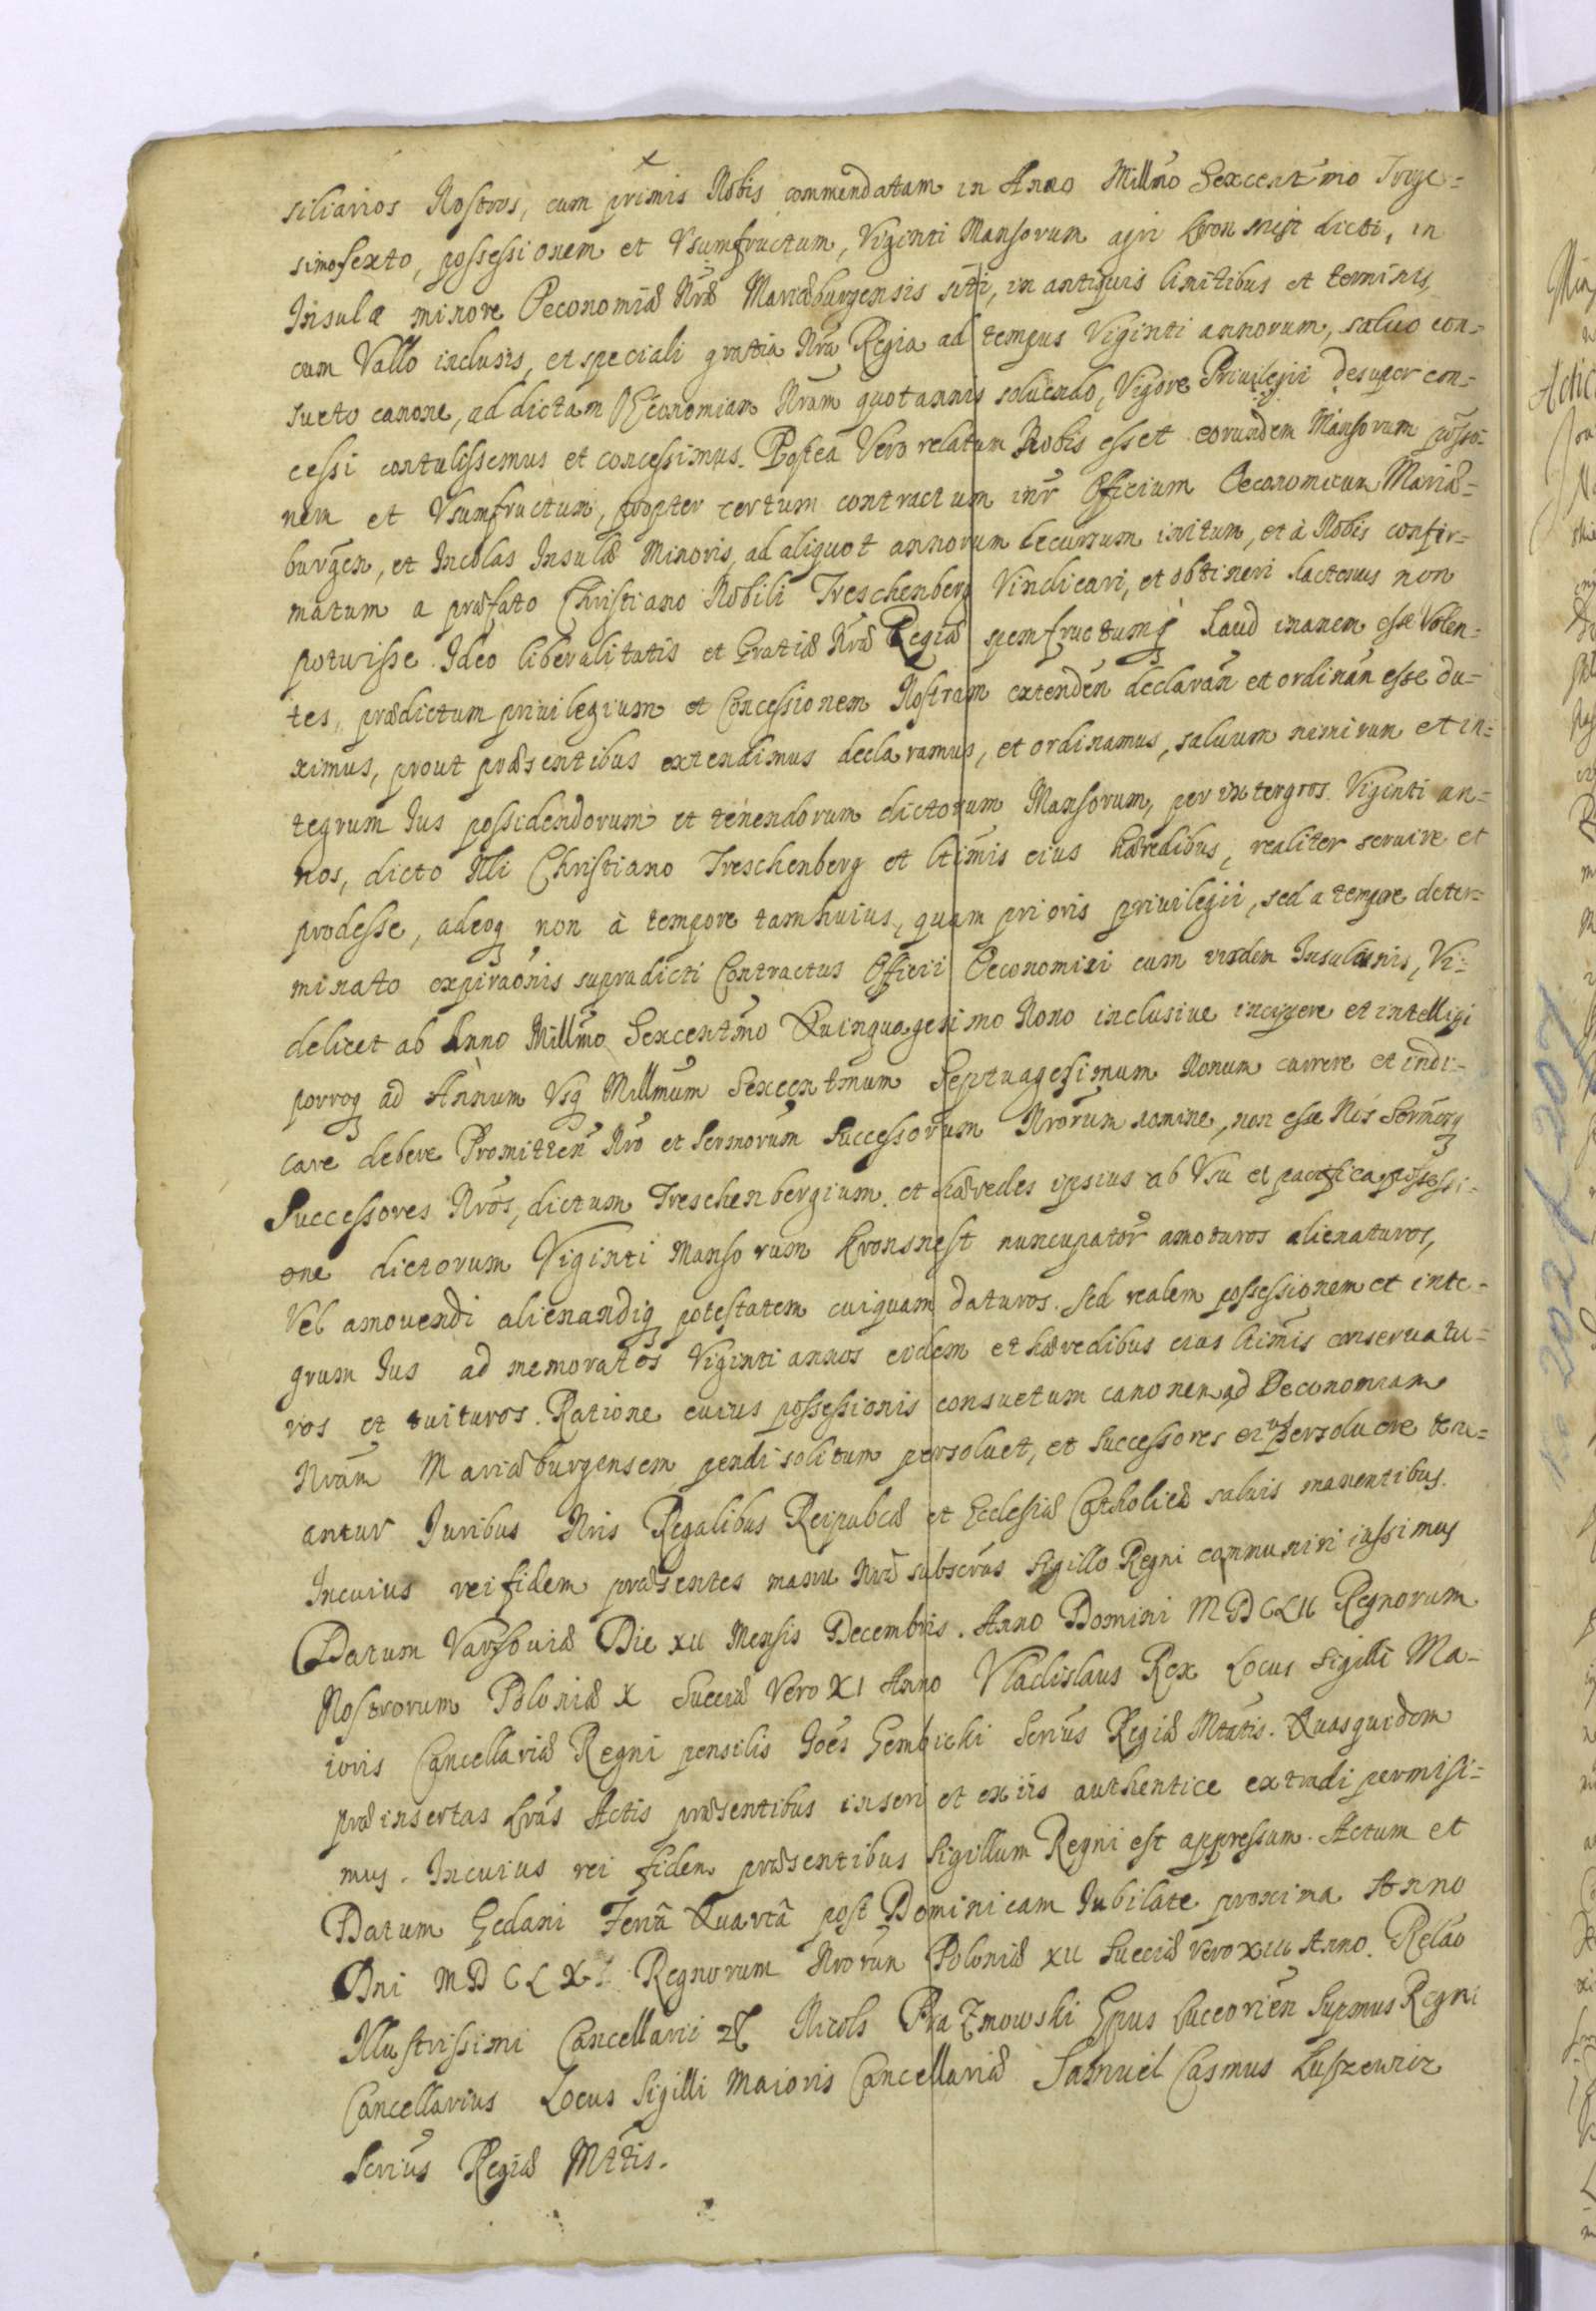 siliarios Nostros, cum primis Nobis commendatam in Anno Millmo Sexcentmo Trige-
simosexto, possessionem et Vsumfructum, Viginti Mansorum agri Kronsnest dicti, in
Insula minore Oeconomiæ Nræ Mariæburgensis siti, in antiquis limitibus et terminis,
cum Vallo inclusis, et speciali gratia Nra Regia ad tempus Viginti annorum, saluo con-
sueto canone, ad dictam Oeconomiam Nram quotannis soluendo, Vigore Priuilegii desuper con-
cessi contulissemus et concessimus. Postea Vero relatum Nobis esset eorundem Mansorum
nem et Vsumfructum, propter certum contractum intr Officium Oeconomicum Mariæ-
burgen, et Incolas Insulæ Minoris, ad aliquot annorum decursum initum, et à Nobis confir-
matum a præfato Christiano Nobili Treschenberg Vindicari, et obtineri hactenus non
potuisse. Ideo liberalitatis et Gratiæ Nræ Regiæ spem fructumq haud inanem esse Volen-
tes, prædictum priuilegium et Concessionem Nostram extenden declaran et ordinan esse du-
ximus, prout præsentibus extendimus declaramus, et ordinamus, saluum nimirum et in-
tegrum Ius possidendorum et tenendorum dictorum Mansorum, per intergros Viginti an-
nos, dicto Nli Christiano Treschenberg et ltimis eius hæredibus, realiter seruire et
prodesse, adeoq non à tempore tam huius, quam prioris priuilegii, sed a tempore deter-
minato expiraonis supradicti Contractus Officii Oeconomici cum iisdem Insulanis, Vi-
delicet ab Anno Millmo Sexcentmo Quinquagesimo Nono inclusiue incipere et intelligi
porroq ad Annum Vsq Millmum Sexcentmum Septuagesimum Nonum currere et indi-
care debere Promitten Nro et Sermorum Successorum Nrorum nomine, non esse Nos Sermosq
Successores Nros, dictum Treschenbergium et hæredes ipsius ab Vsu et pacifica possessi-
one dictorum Viginti Mansorum Kronsnest nuncupator amoturos alienaturos,
Vel amouendi alienandiq potestatem cuiquam daturos. Sed realem possessionem et inte-
grum Ius ad memoratos Viginti annos eidem et hæredibus eius ltimis conseruatu-
ros et tuituros. Ratione cuius possessionis consuetum canonem ad Oeconomiam
Nram Mariæburgensem pendi solitum persoluet, et Successores eius persoluere tene-
antur Iuribus Nris Regalibus Reipubcæ et Ecclesiæ Catholicæ saluis manentibus.
Incuius rei fidem præsentes manu Nra subscras Sigillo Regni communiri iussimus
Datum Varsouiæ Die XII Mensis Decembris. Anno Domini MDCXLII Regnorum
Nostrorum Poloniæ X Sueciæ Vero XI Anno Vladislaus Rex Locus Sigilli Ma-
ioris Cancellariæ Regni pensilis Joes Gembicki Secrius Regiæ Mtatis. Quasquidem
præinsertas Lras Actis præsentibus inseri et ex iis authentice extradi permisi-
mus. Incuius rei fidem præsentibus Sigillum Regni est appressum. Actum et
Datum Gedani Feria Quarta post Dominicam Iubilate proxima Anno
Dni MDCLXI Regnorum Nrorum Poloniæ XII Sueciæ vero XIII Anno. Relao
Illustrissimi Cancellarii Nicols Prazmowski Epus Luceorien Supmus Regni
Cancellarius Locus Sigilli Maioris Cancellariæ Samuel Casmus Luszewicz
Secrius Regiæ Mttis.